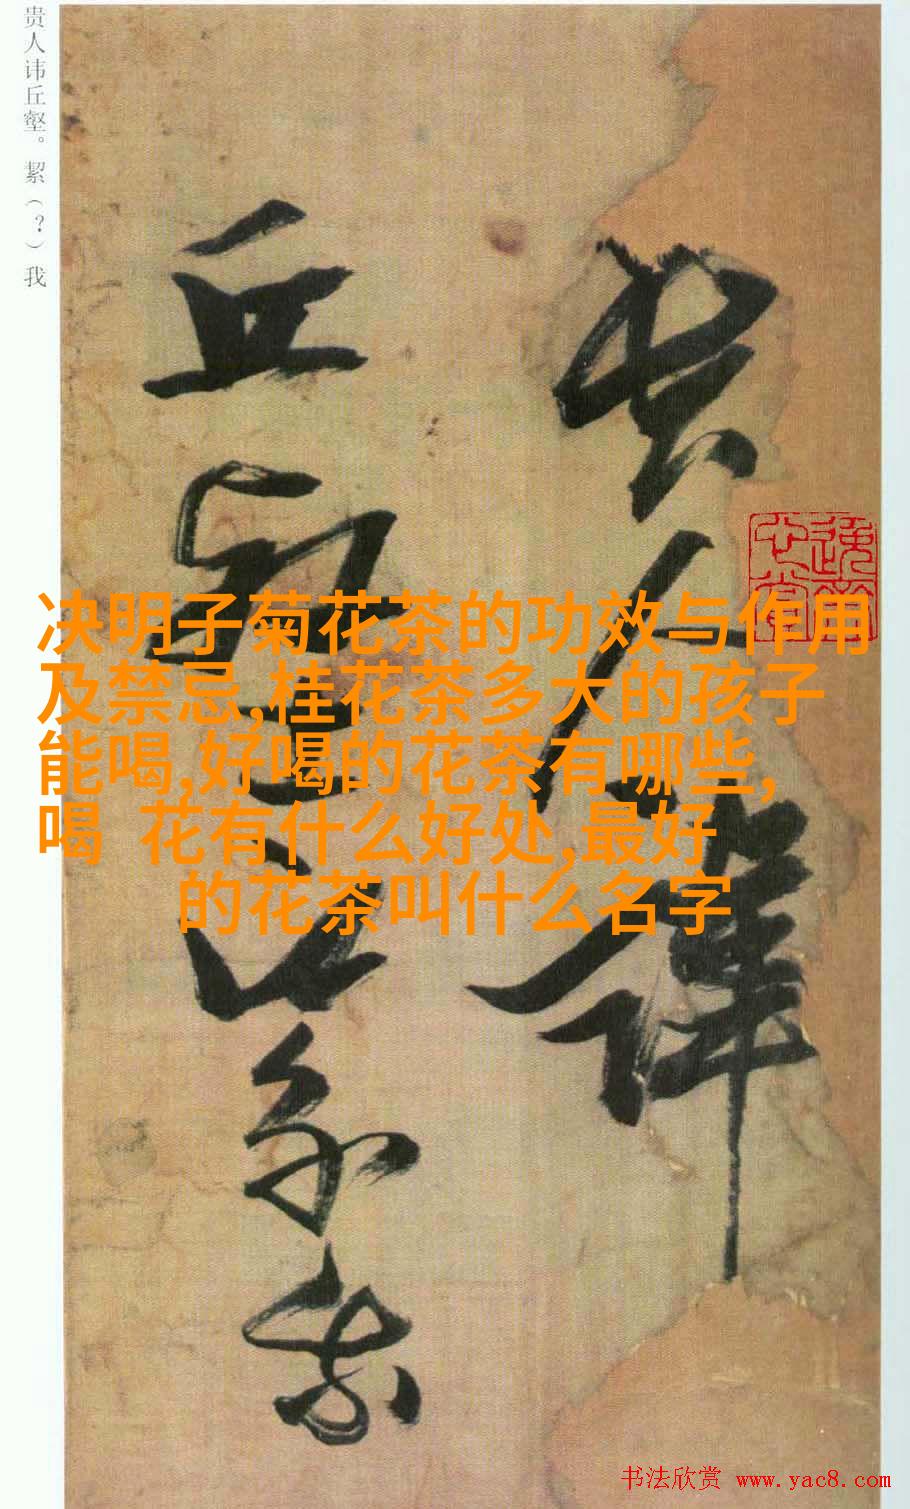 贵人讳丘壑。絜（？）我
贵人讳
丘壑
絜我
决明子菊花茶的功效与作用
及禁忌,桂花茶多大的孩子
能喝,好喝的花茶有哪些,
喝 花有什么好处,最好
的花茶叫什么名字
书法欣赏 www.yac8.com